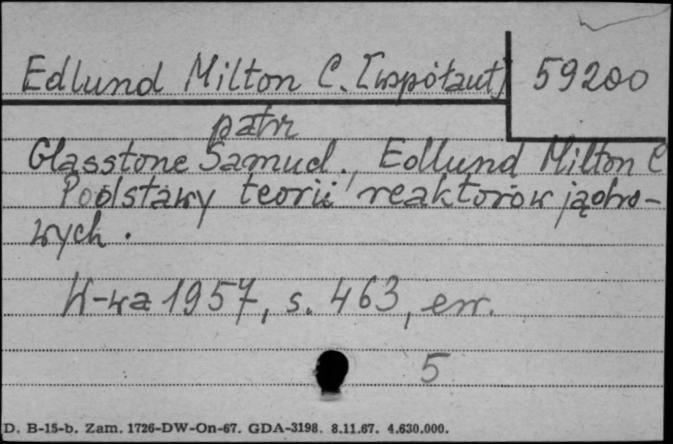 Edlund Milton C. [współaut] 59200
patrz
Glasstone Samuel., Edlund Milton C
Podstawy teorii reaktorów jądro-
wych.
W-wa 1957, s. 463, err.
5
D. B-15-b. Zam. 1726-DW-On-67. GDA-3198. 8.11.67. 4.630.000.